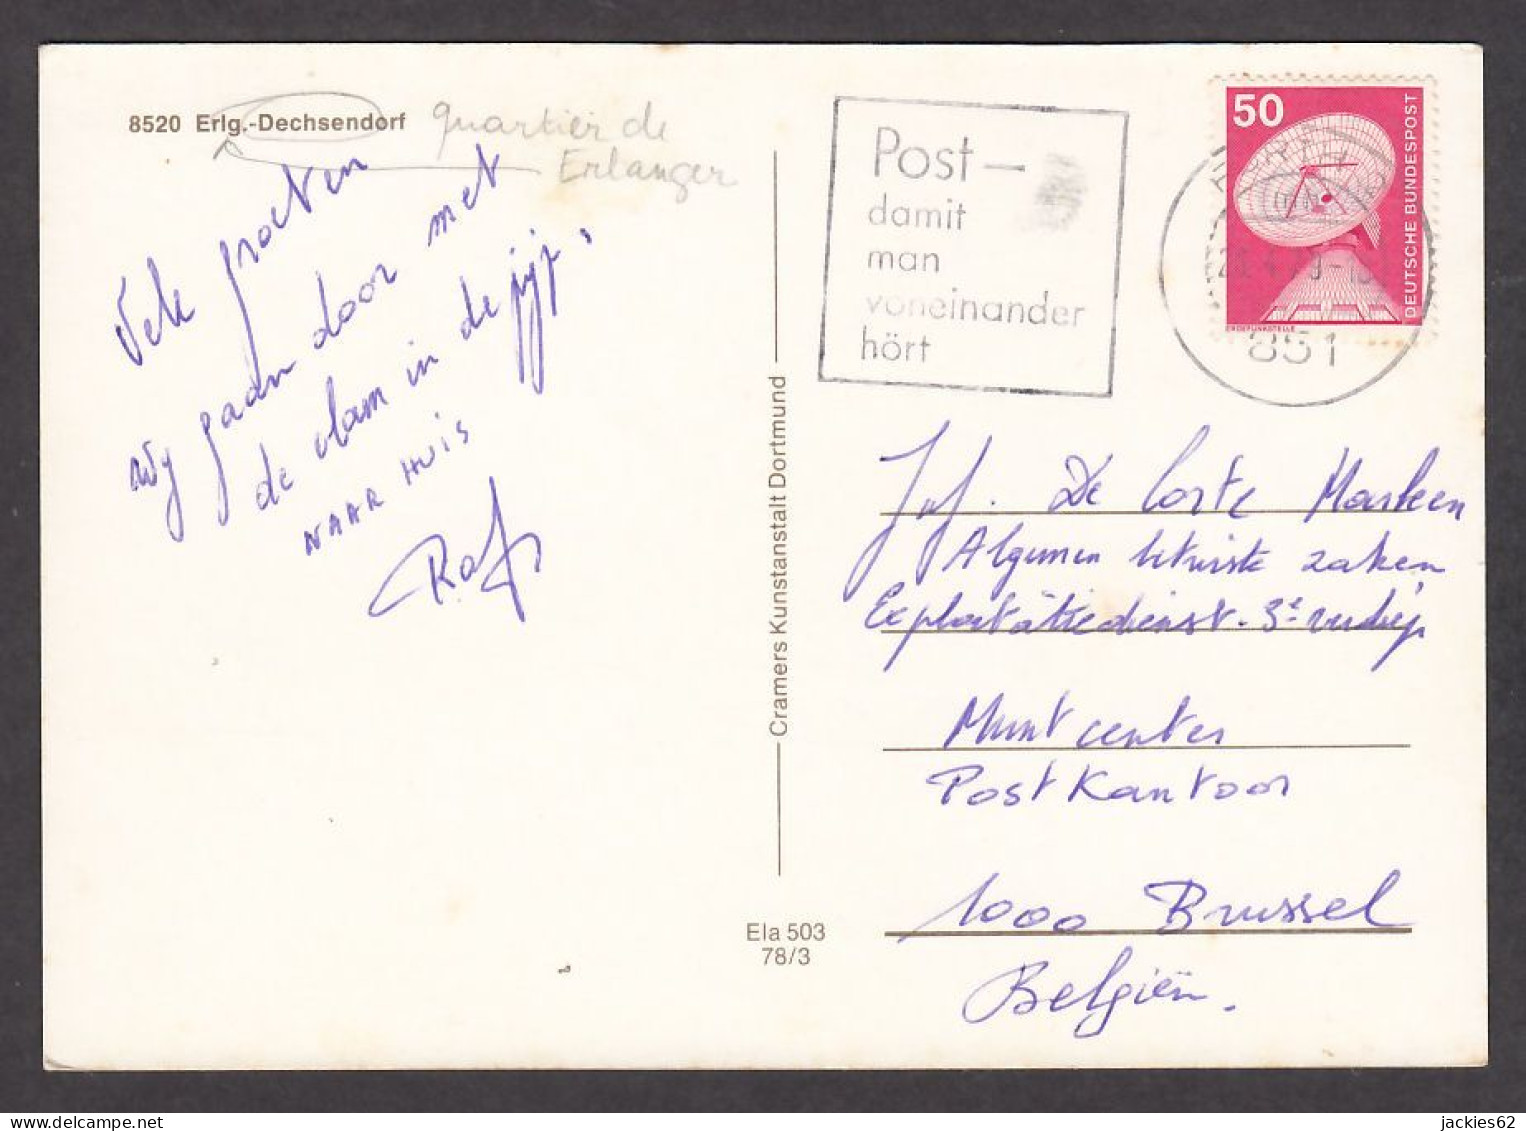 8520 Erlg.-Dechsendorf
quartier de
Erlanger
Vele groeten
wij gaan door met
de vlam in de pijp,
NAAR HUIS
Raf
Post -
damit
man
voneinander
hört
50
DEUTSCHE BUNDESPOST
ERDEFUNKSTELLE
851
Cramers Kunstanstalt Dortmund
Ela 503
78/3
Juf. De Corte Marleen
Algemen betwiste zaken
Exploitatiedienst - 3e verdiep
Munt center
Postkantoor
1000 Brussel
Belgiën.
delcampe.net
jackies62